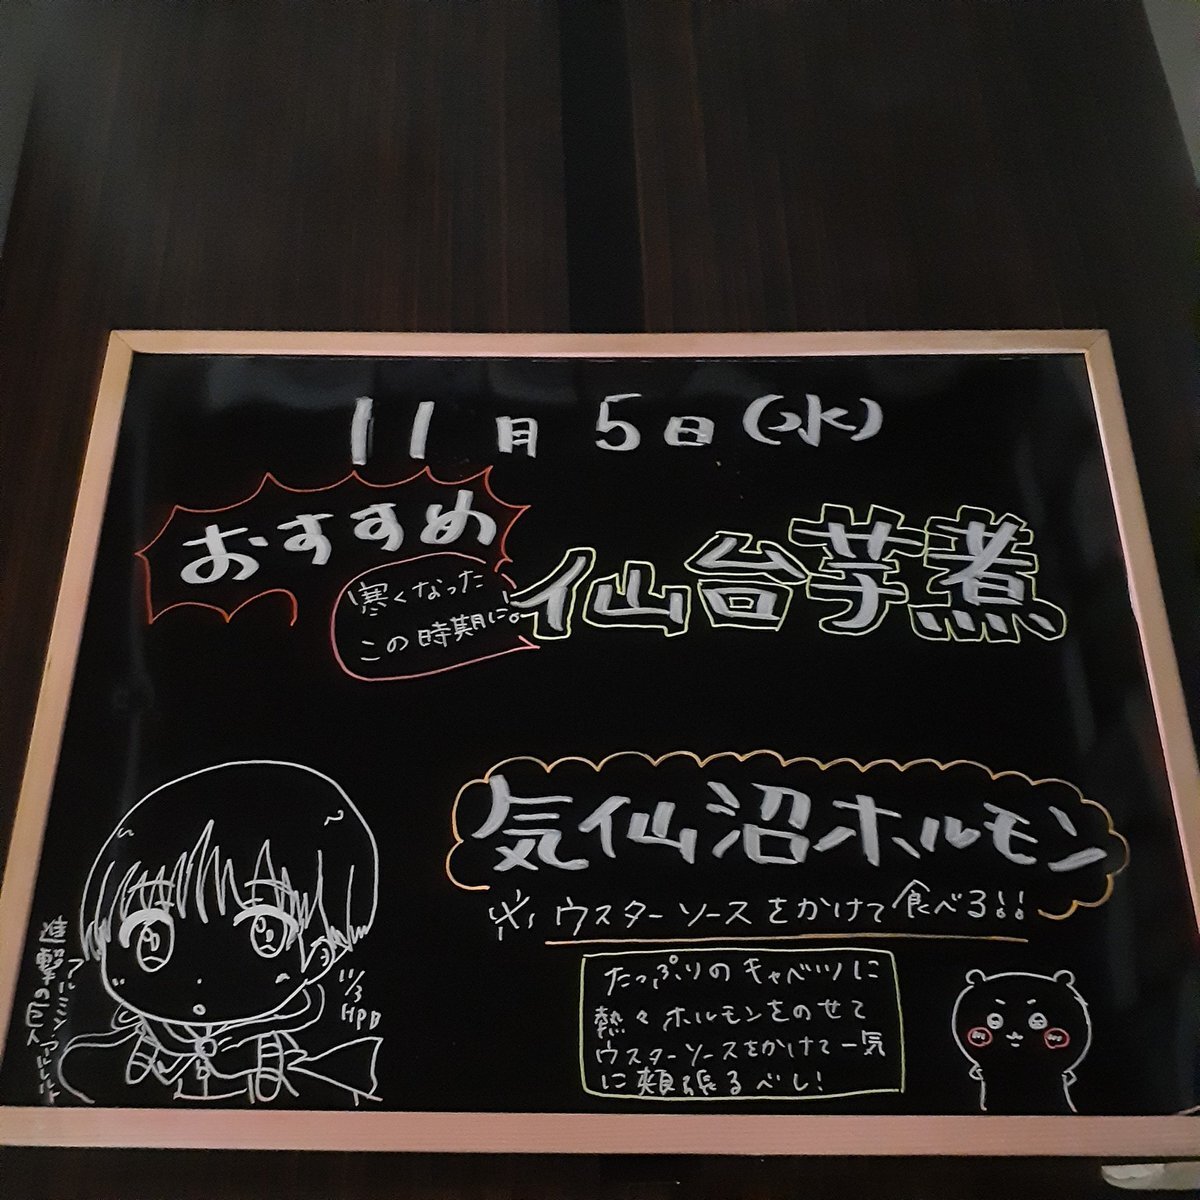 11月5日(水)
おすすめ
寒くなった
この時期に。
仙台芋煮
気仙沼ホルモン
※ウスターソースをかけて食べる!!
たっぷりのキャベツに
熱々ホルモンをのせて
ウスターソースをかけて一気
に頬張るべし!
進撃の巨人
アルミンアルレルト
11/3
HPD